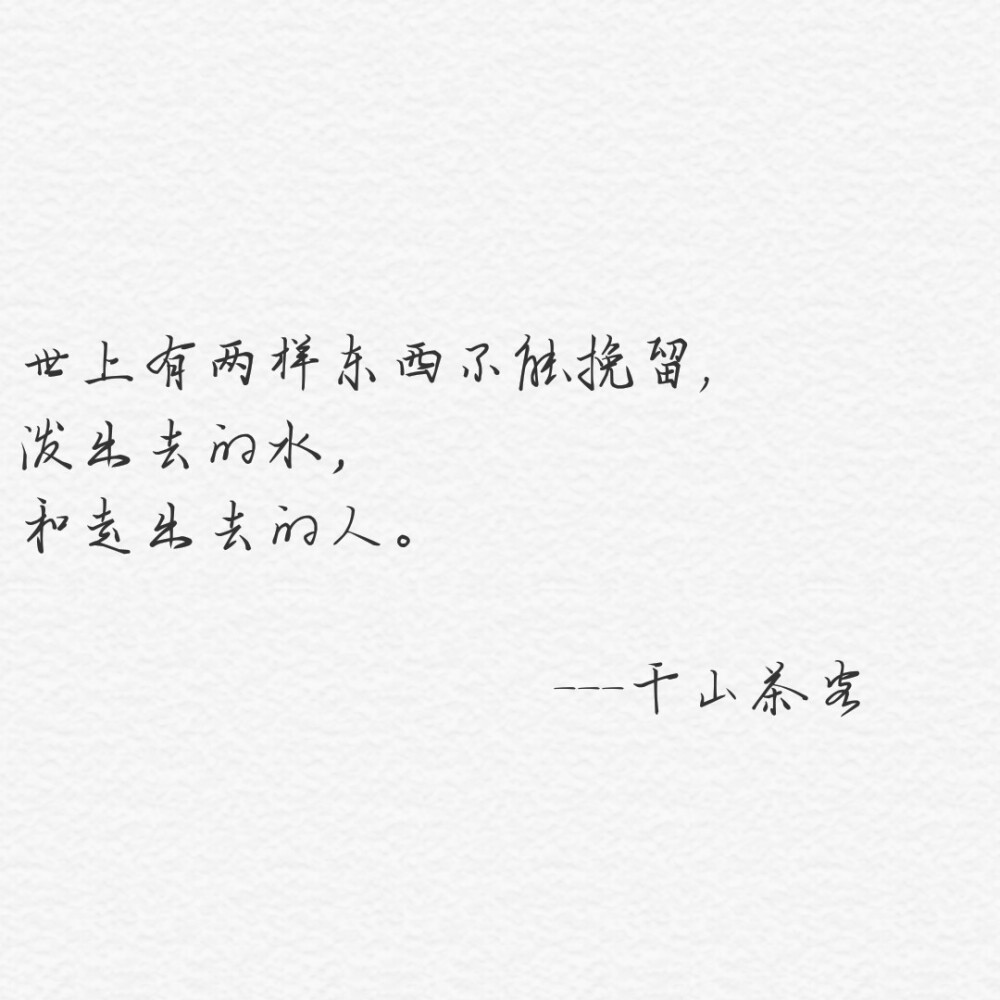 世上有两样东西不能挽留,
泼出去的水,
和走出去的人。
---千山茶客